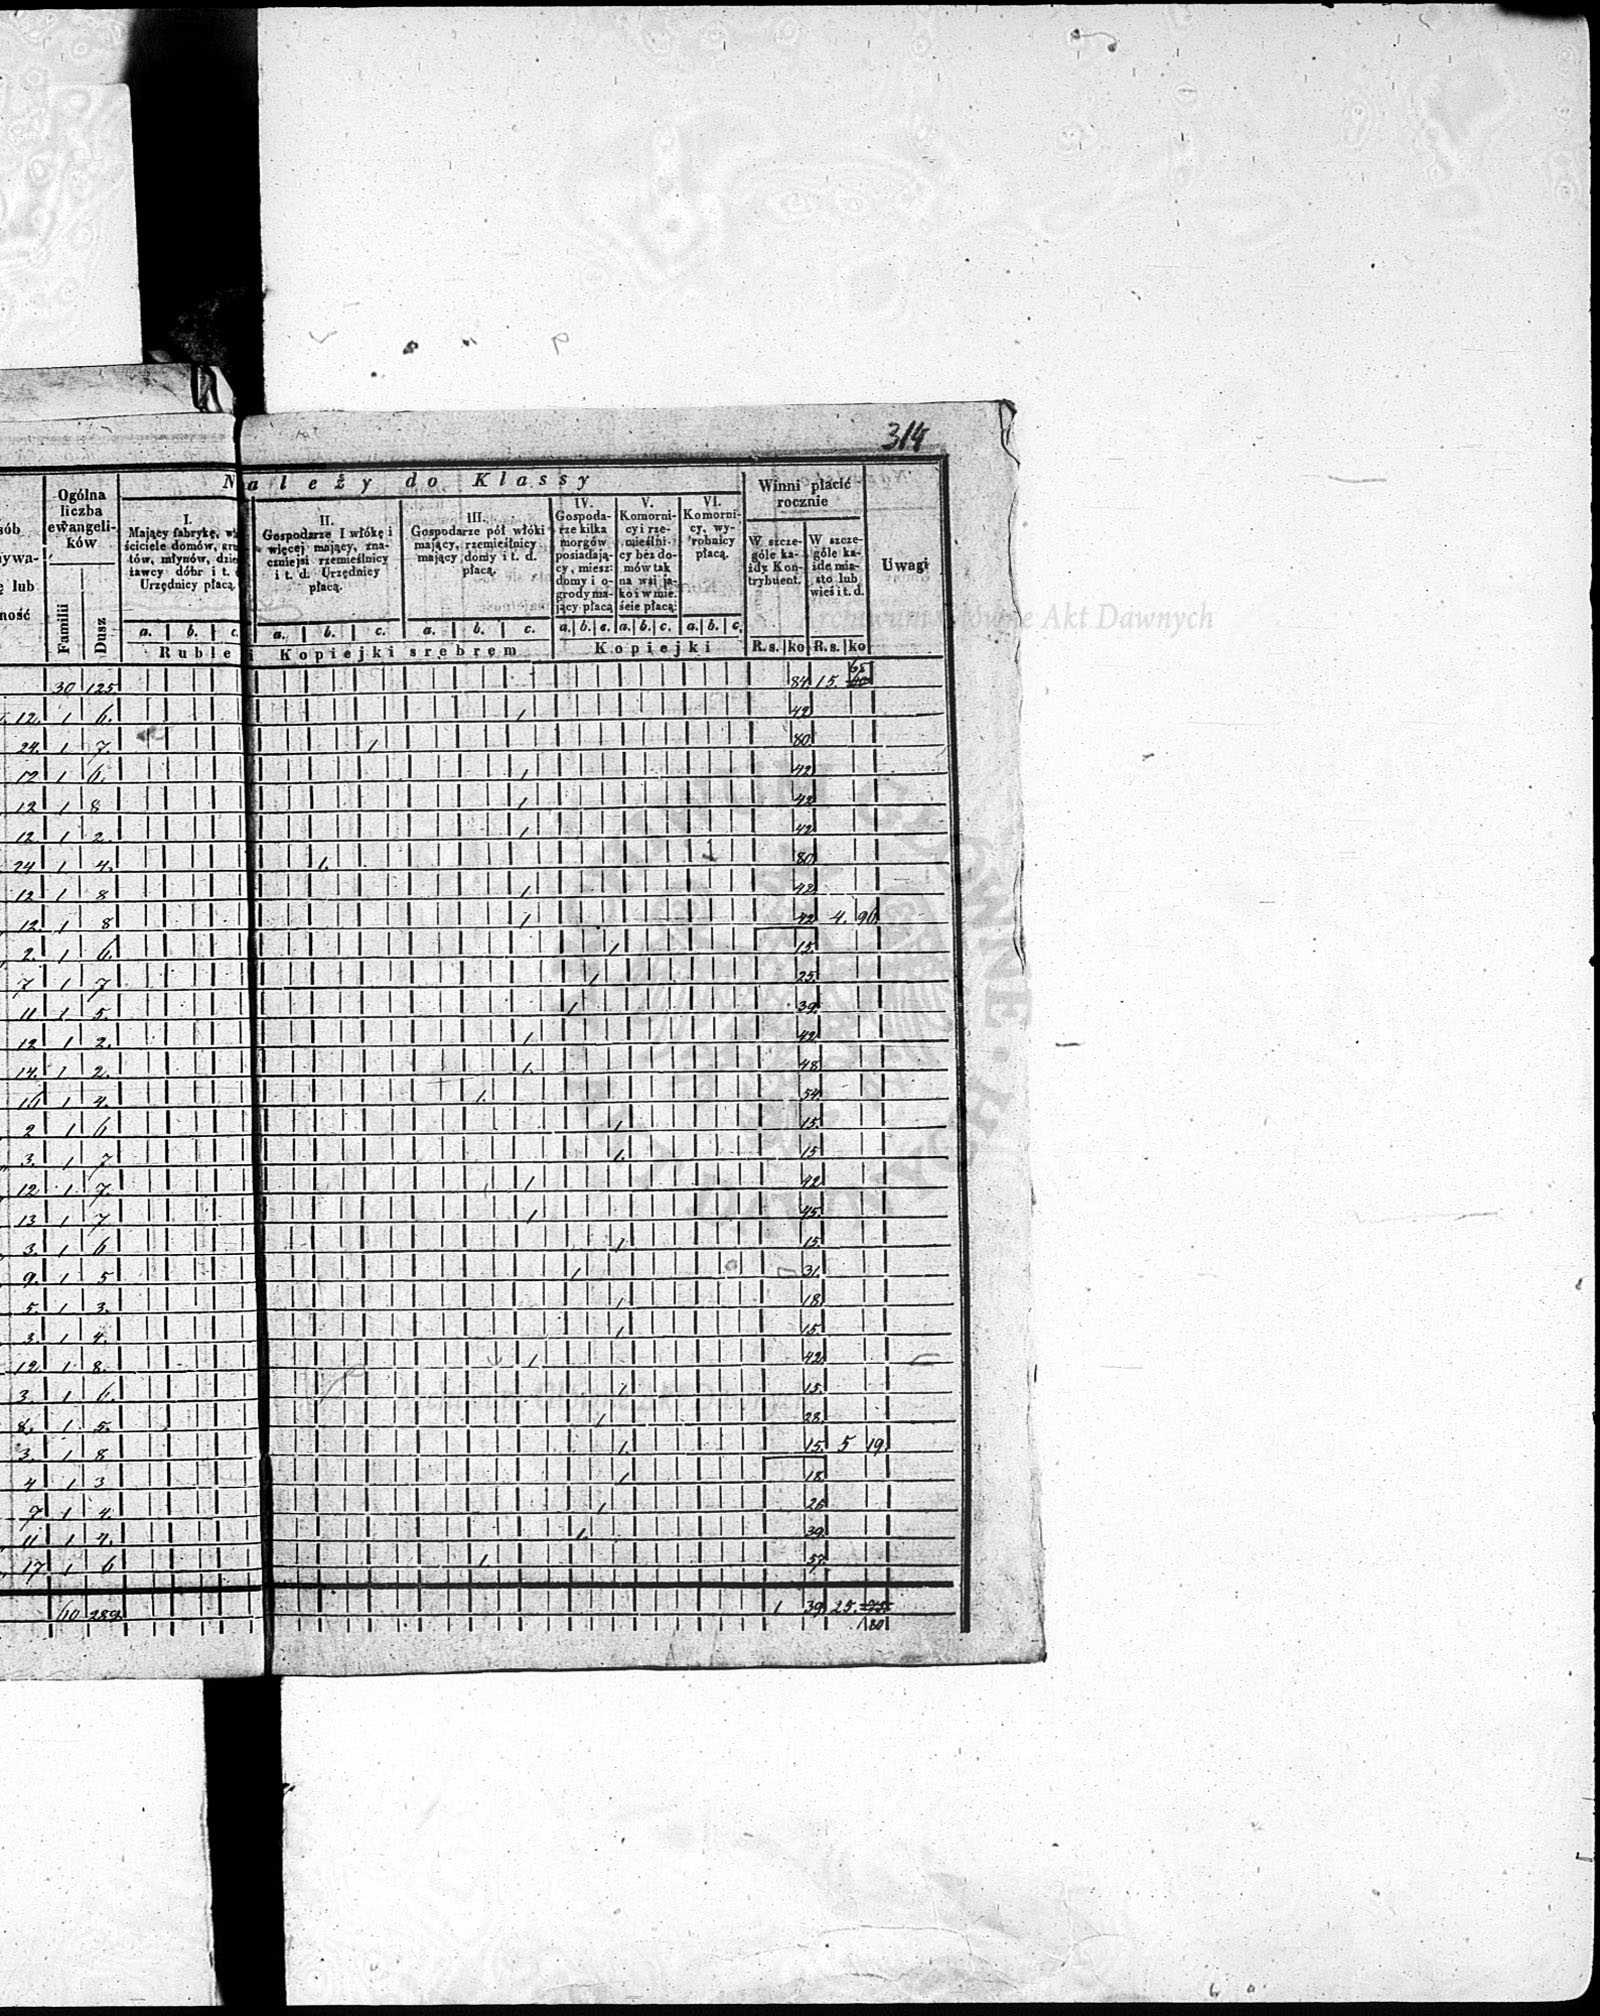 314
Należy do Klassy
sób
ywa-
ę lub
ność
Ogólna
liczba
ewangeli-
ków
Familii
Dusz
I.
Mający fabrykę, wł
ściciele domów, gru
tów, młynów, dzie
żawcy dóbr i t. d
Urzędnicy płacą.
II.
Gospodarze 1 włókę i
więcej mający, zna-
czniejsi rzemieślnicy
i t. d. Urzędnicy
płacą.
III.
Gospodarze pół włóki
mający, rzemieślnicy
mający domy i t. d.
płacą.
IV.
Gospoda-
rze kilka
morgów
posiadają-
cy, miesz:
domy i o-
grody ma-
jący płacą
V.
Komorni-
cy i rze-
mieślni-
cy bez do-
mów tak
na wsi ja-
ko i w mie.
ście płacą:
VI.
Komorni-
cy, wy-
robnicy
płacą.
Winni płacić
rocznie
W szcze-
góle ka-
idy Kon-
trybuent.
W szcze-
góle ka-
ide mia-
sto lub
wieś i t. d.
Uwagi
a. b. c. a. b. c. a. b. c. a. b. c. a. b. c. a. b. c.
Ruble i Kopiejki srebrem Kopiejki R.s. ko R.s. ko
65
30 125 84 15.
12. 1 6. 1 42
24. 1 7. 1 80
12 1 6. 1 42
12 1 8 1 42
12. 1 2. 1 42
24 1 4. 1. 80
12 1 8 1 42
12. 1 8 1 42 4. 90
2. 1 6. 1 15
7 1 7 1 25
11 1 5. 1 39
12 1 2. 1 42
14. 1 2. 1. 48
16 1 4. 1. 54
2 1 6 1 15.
3. 1 7 1. 15
12 1 7. 1 42
13 1 7 1 45.
3. 1 6 1 15.
9. 1 5 1 31.
5. 1 3. 1 18
3. 1 4. 1 15
12. 1 8. 1 42
3. 1 6. 1 15.
8. 1 5. 1 28.
3. 1 8 1. 15. 5 19
4 1 3 1 18.
7 1 4 1 25
11 1 4. 1. 39.
17 1 6 1 57.
60 289 1 39 25.
80
Archiwum Główne Akt Dawnych
Archiwum Główne Akt Dawnych